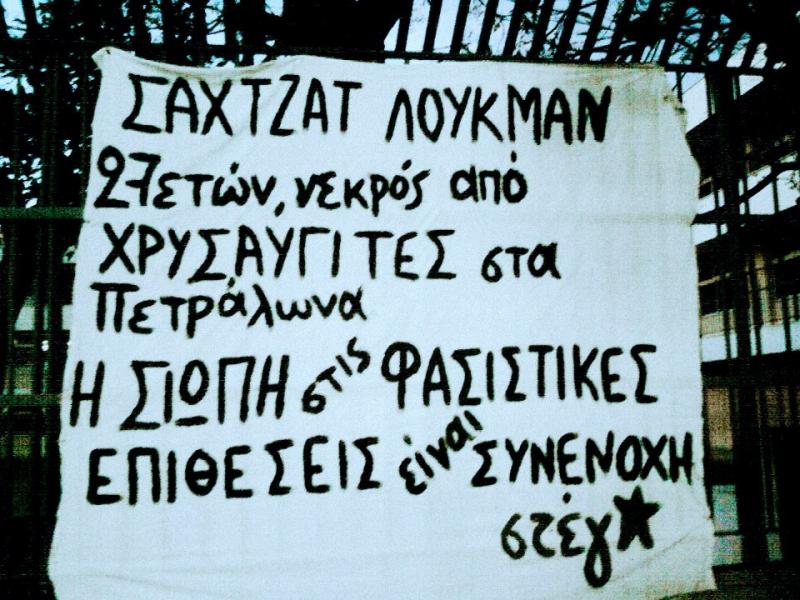 ΣΑΧΤΖΑΤ ΛΟΥΚΜΑΝ
27ετών, νεκρός από
ΧΡΥΣΑΥΓΙΤΕΣ στα
Πετράλωνα
Η ΣΙΩΠΗ στις ΦΑΣΙΣΤΙΚΕΣ
ΕΠΙΘΕΣΕΙΣ είναι ΣΥΝΕΝΟΧΗ
στέγ★